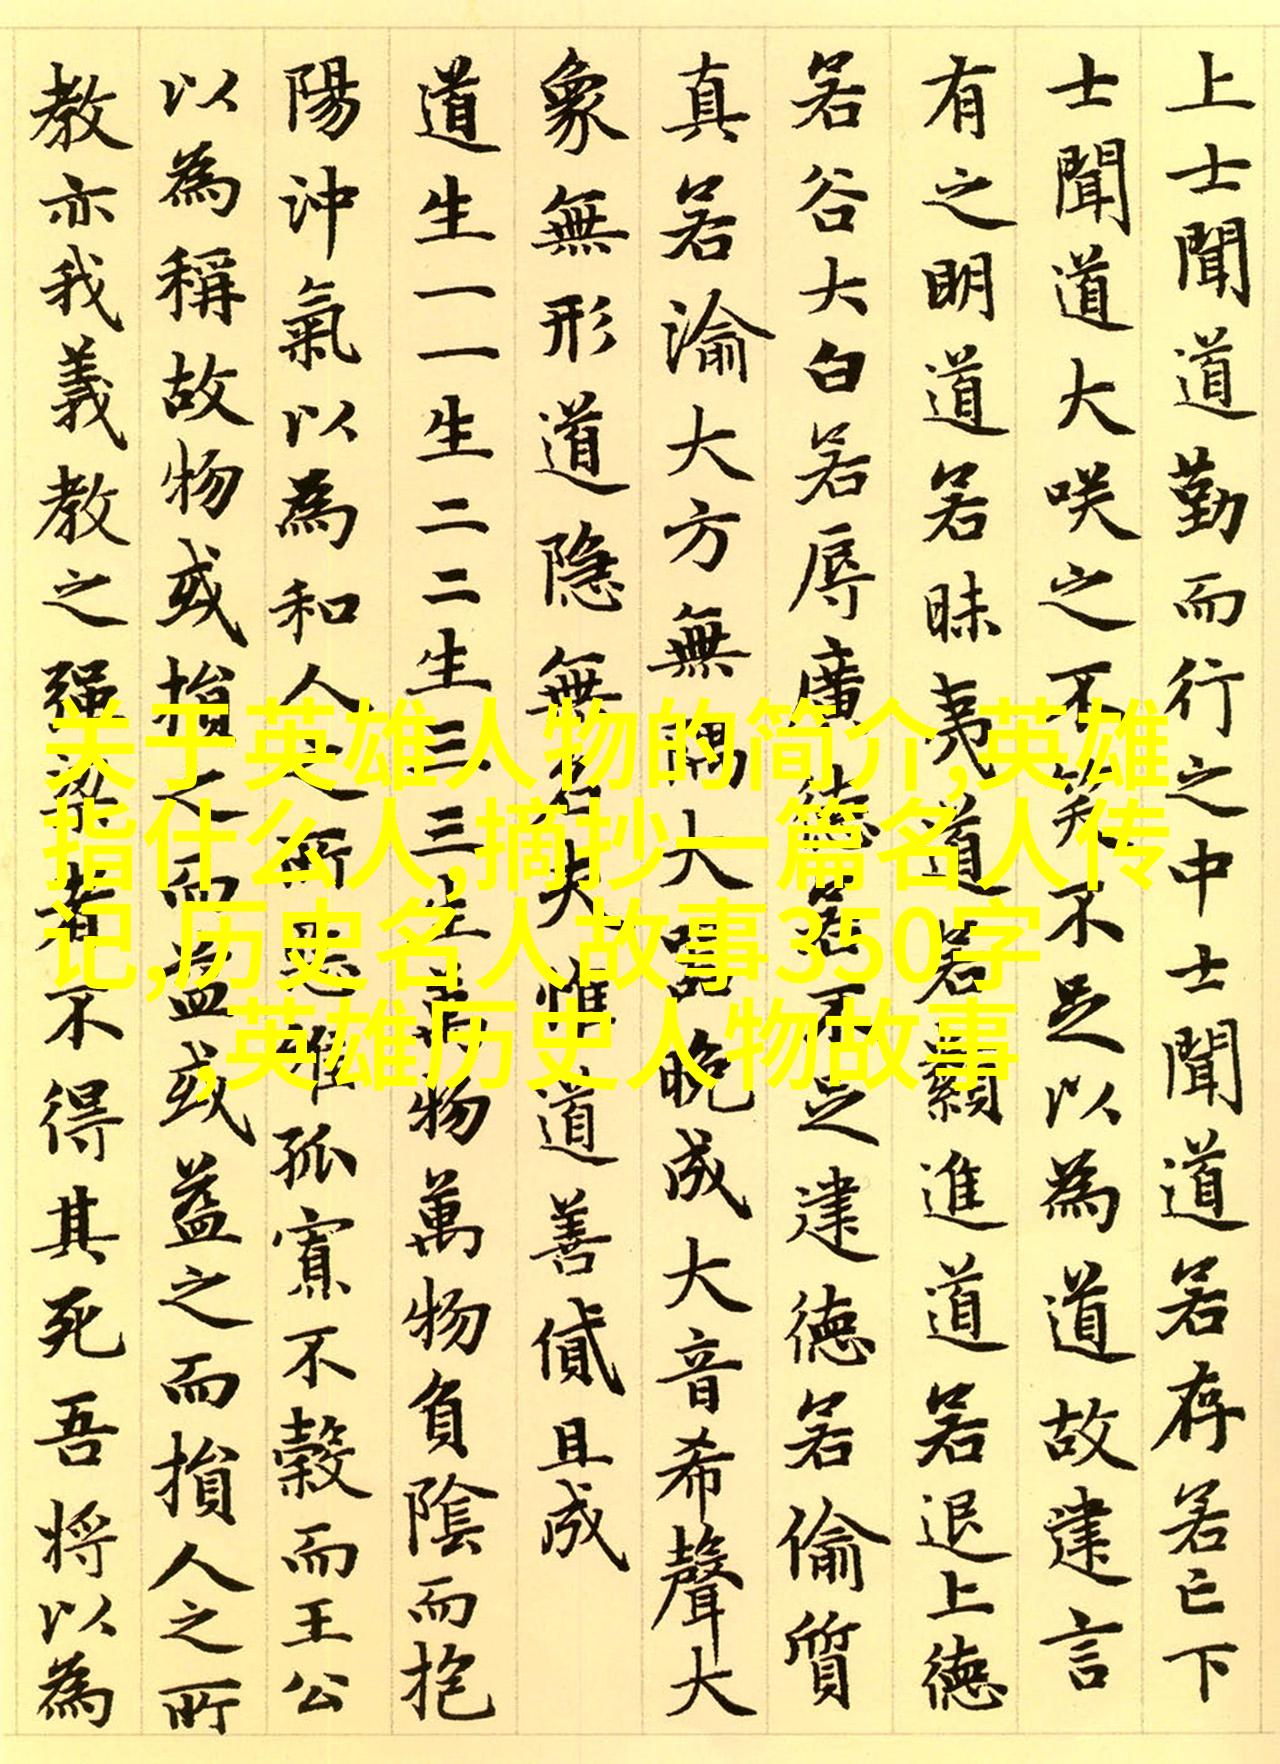 上士聞道勤而行之中士聞道若存若亡下
士聞道大咲之不笑不足以為道故建言
有之明道若昧夷道若纇進道若退上德
若谷大白若辱廣德若不足建德若偷質
真若渝大方無隅大器晚成大音希聲大
象無形道隐無名夫惟道善貸且成
道生一一生二二生三三生萬物萬物負陰而抱
陽沖氣以為和人之所惡惟孤寡不穀而王公
以為稱故物或損之而益或益之而損人之所
教亦我義教之强梁者不得其死吾将以為
关于英雄人物的简介,英雄
指什么人,摘抄一篇名人传
记,历史名人故事350字
,英雄历史人物故事